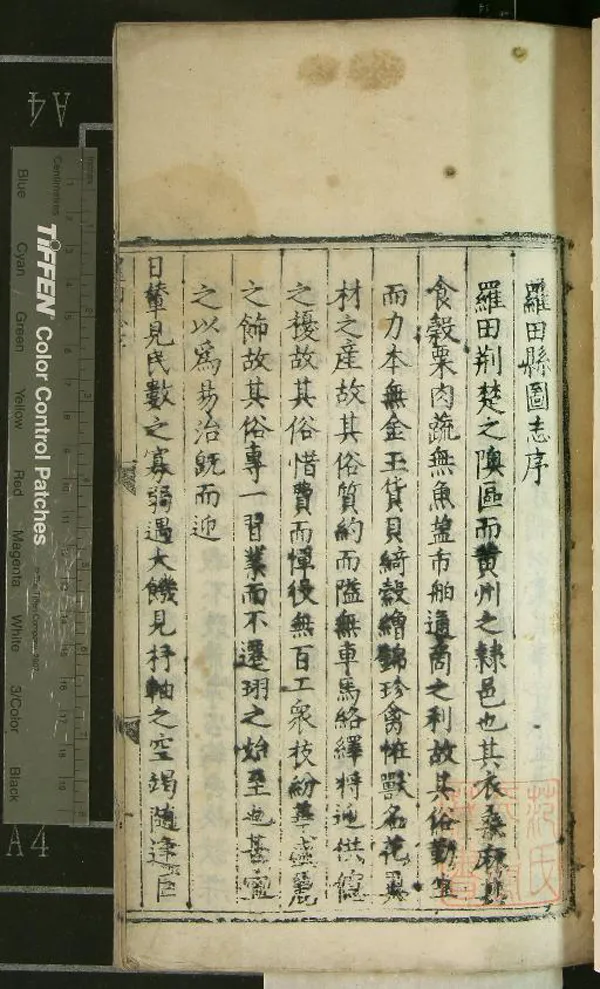 羅田縣圖志序
羅田荆楚之隩區而黄州之隸邑也其衣桑麻其
食穀粟肉蔬無魚鹽市舶通商之利故其俗勤
而力本無金玉貨貝綺縠繒錦珍禽恠獸名花異
材之產故其俗質約而隘無車馬絡繹将迎供億
之擾故其俗惜費而憚役無百工衆技紛華盛麗
之飾故其俗專一習業而不遷珝之始至也甚靈
之以爲易治旣而迎
日輦見民數之寡弱遇大饑見杼軸之空竭隨逢巨
范氏
A4
A4
TIFFEN Color Control Patches
Centimetres
Inches
Blue Cyan Green Yellow Red Magenta White 3/Color Black